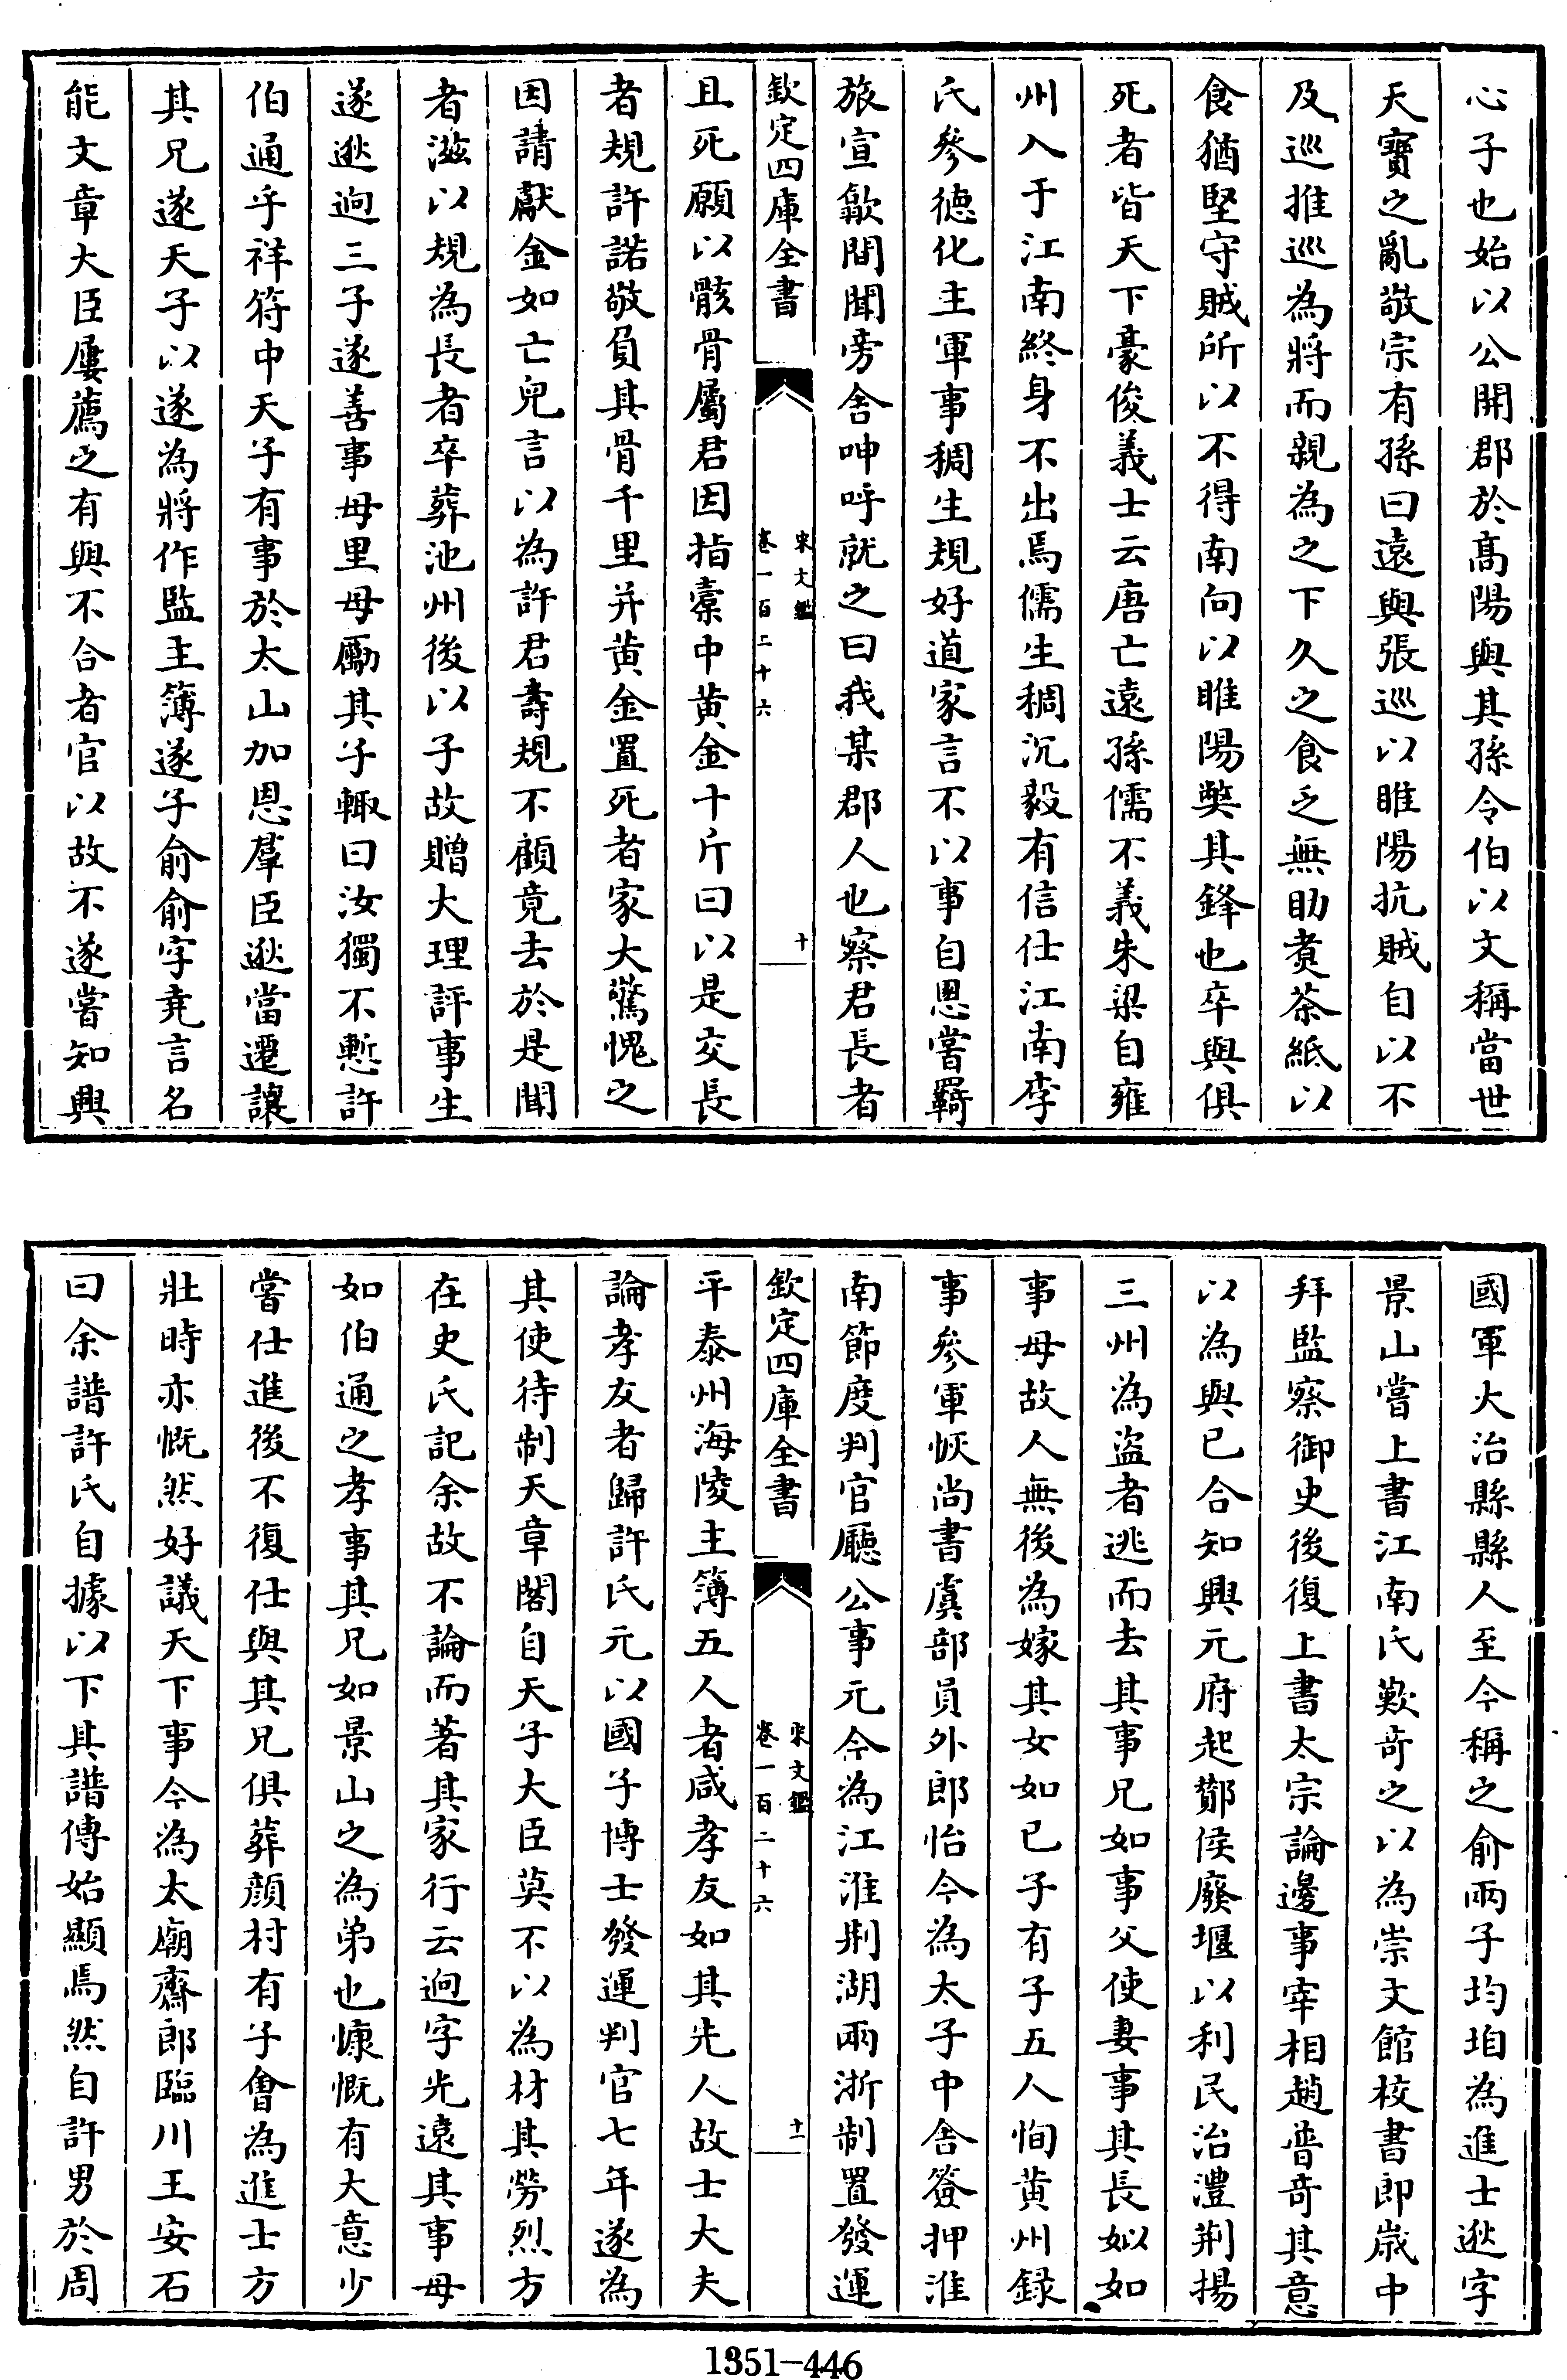 心子也始以公開郡於髙陽與其孫令伯以文稱當世
天寳之亂敬宗有孫曰遠與張巡以睢陽抗賊自以不
及巡推巡為將而親為之下久之食乏無助煑茶紙以
食猶堅守賊所以不得南向以睢陽弊其鋒也卒與俱
死者皆天下豪俊義士云唐亡遠孫儒不義朱梁自雍
州入于江南終身不出焉儒生稠沉毅有信仕江南李
氏參徳化主軍事稠生規好道家言不以事自恩嘗羇
旅宣歙間聞旁舍呻呼就之曰我某郡人也察君長者
欽定四庫全書
宋文鑑
卷一百二十六
十
且死願以骸骨屬君因指橐中黄金十斤曰以是交長
者規許諾敬負其骨千里并黄金置死者家大驚愧之
因請獻金如亡兒言以為許君壽規不顧竟去於是聞
者滋以規為長者卒葬池州後以子故贈大理評事生
遂逖迥三子遂善事母里母勵其子輙曰汝獨不慙許
伯通乎祥符中天子有事於太山加恩羣臣逖當遷讓
其兄遂天子以遂為將作監主簿遂子俞俞字堯言名
能文章大臣屢薦之有與不合者官以故不遂嘗知興
國軍大冶縣縣人至今稱之俞兩子均垍為進士逖字
景山嘗上書江南氏歎竒之以為崇文館校書郎歳中
拜監察御史後復上書太宗論邊事宰相趙普竒其意
以為與已合知興元府起酇侯廢堰以利民治澧荆揚
三州為盜者逃而去其事兄如事父使妻事其長姒如
事母故人無後為嫁其女如已子有子五人恂黄州録
事參軍恢尚書虞部員外郎怡今為太子中舍簽押淮
南節度判官廳公事元今為江淮荆湖兩浙制置發運
欽定四庫全書
宋文鑑
卷一百二十六
十一
平泰州海陵主簿五人者咸孝友如其先人故士大夫
論孝友者歸許氏元以國子博士發運判官七年遂為
其使待制天章閣自天子大臣莫不以為材其勞烈方
在史氏記余故不論而著其家行云迥字光遠其事母
如伯通之孝事其兄如景山之為弟也慷慨有大意少
嘗仕進後不復仕與其兄俱葬顔村有子㑹為進士方
壯時亦慨然好議天下事今為太廟齋郎臨川王安石
曰余譜許氏自據以下其譜傳始顯焉然自許男於周
1351-446